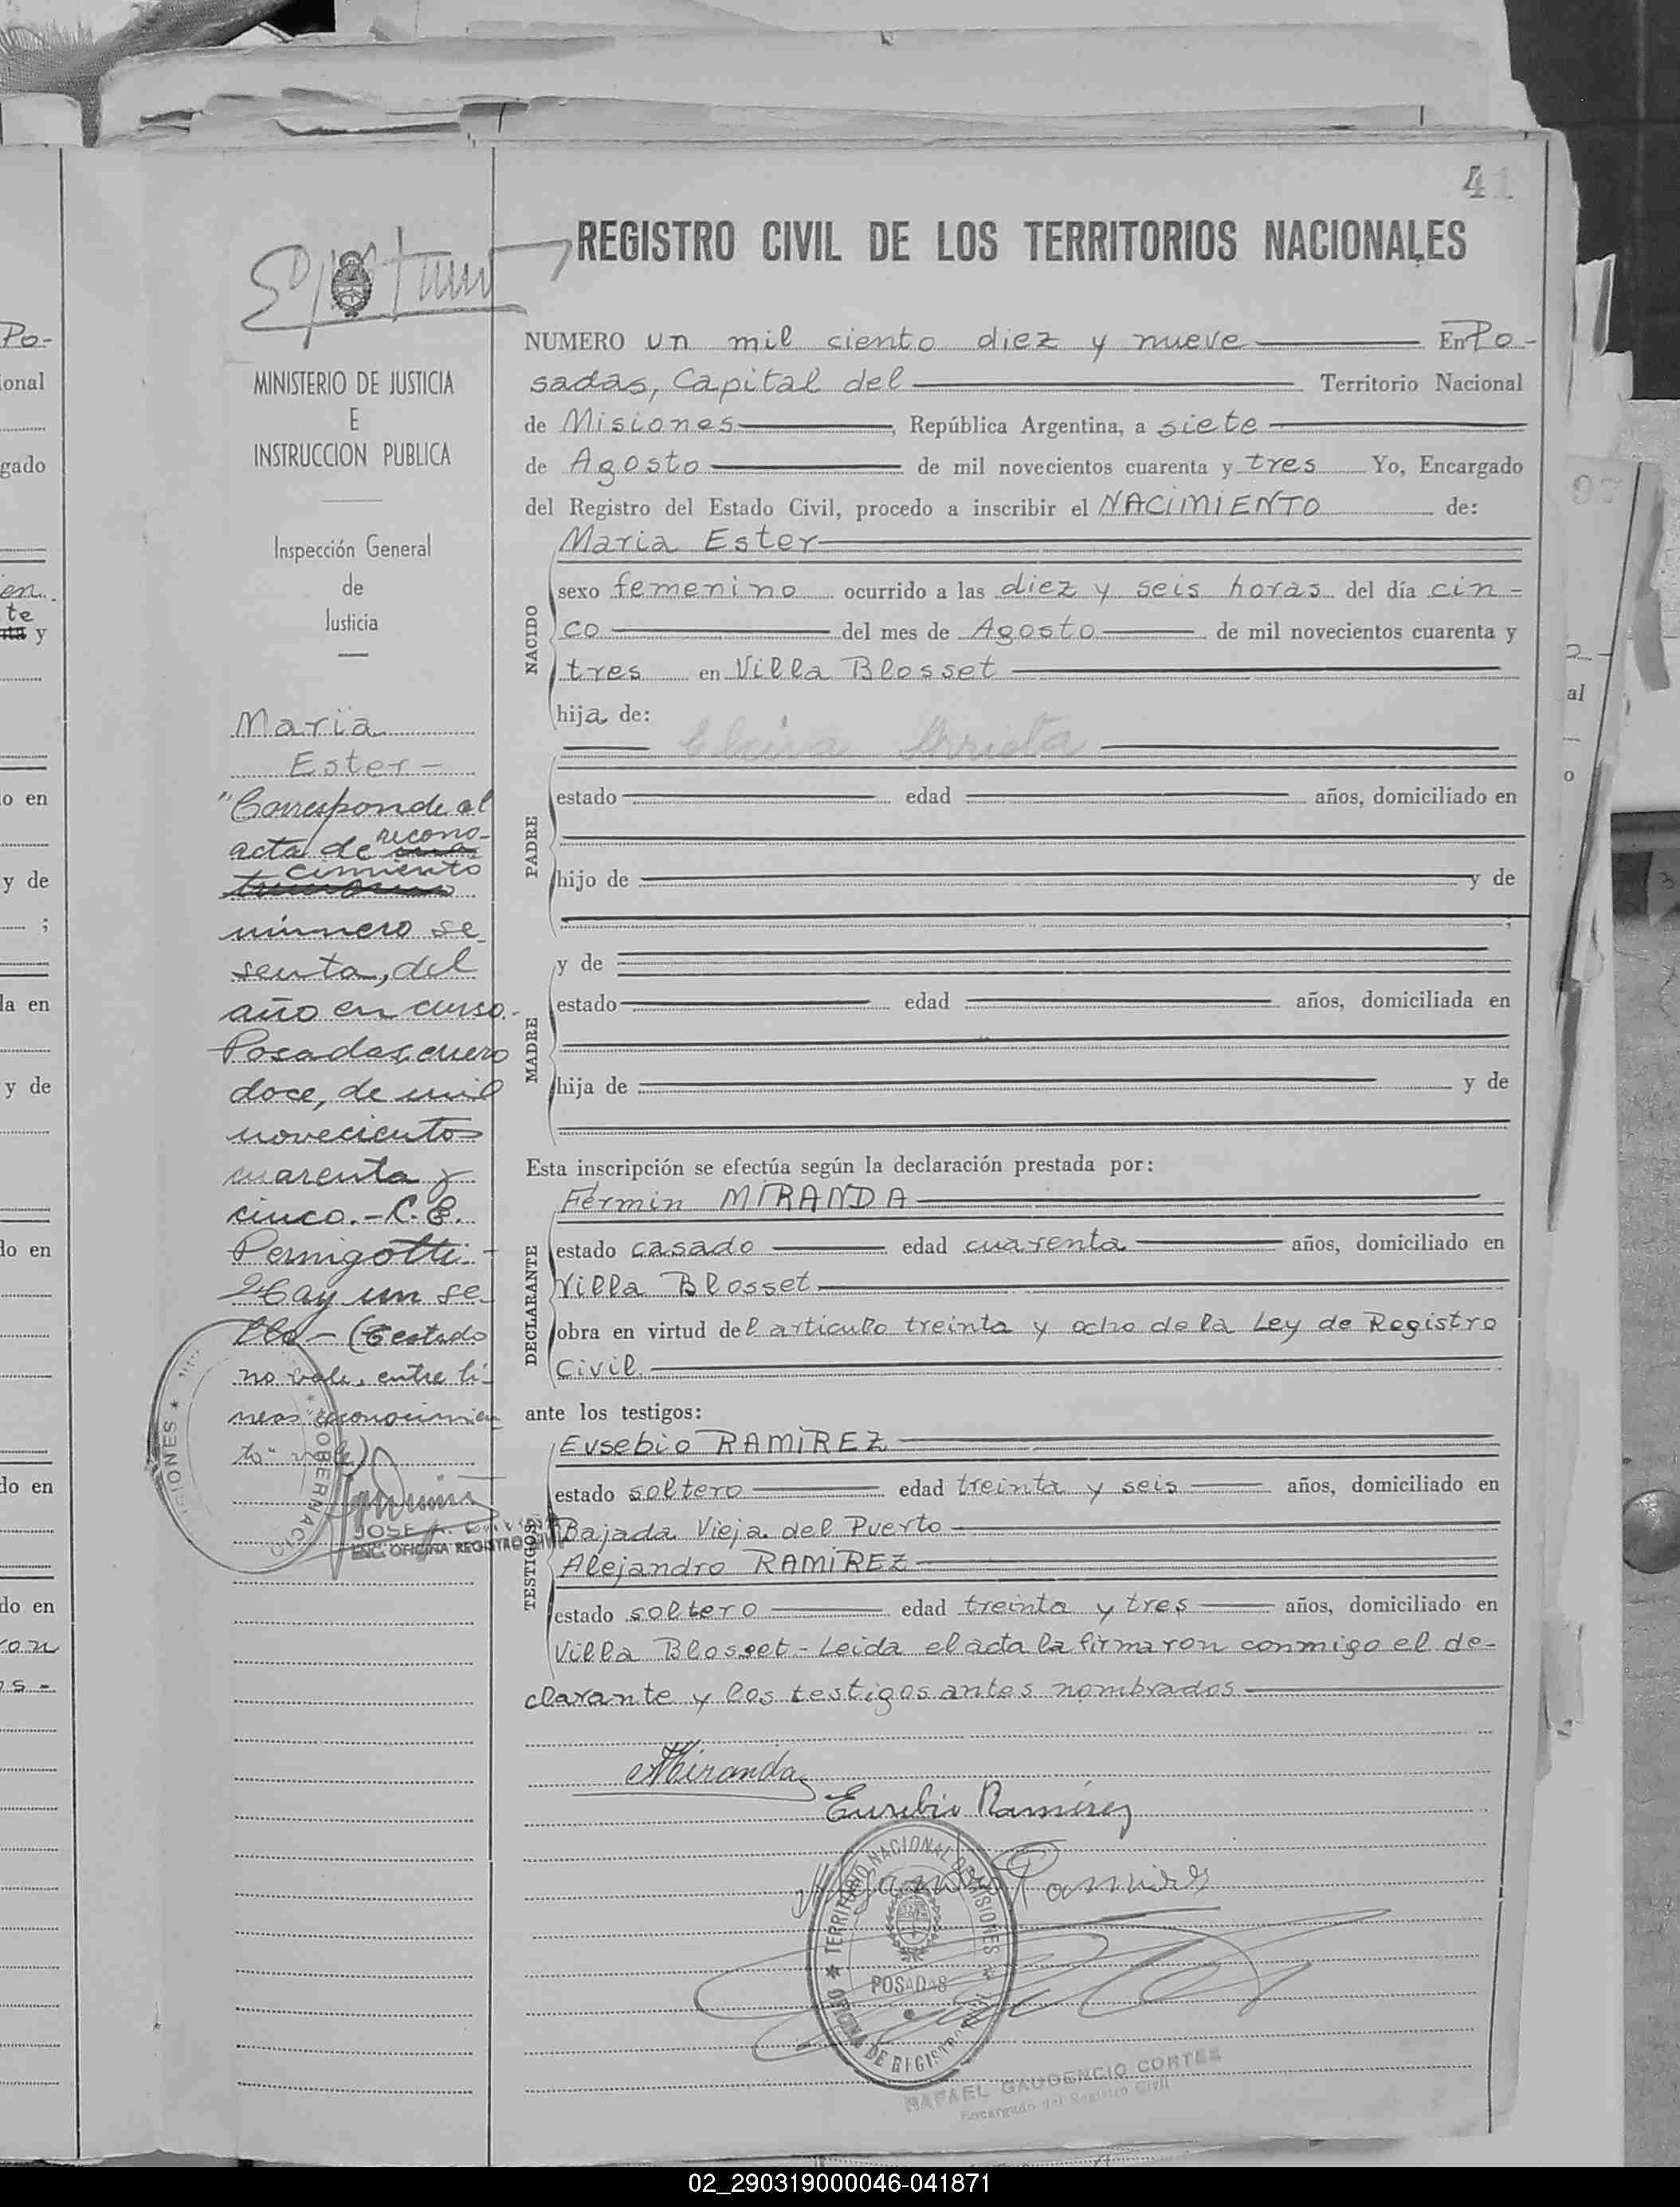 41
REGISTRO CIVIL DE LOS TERRITORIOS NACIONALES
MINISTERIO DE JUSTICIA
E
INSTRUCCION PUBLICA
Inspección General
de
Justicia
Maria
Ester -
"Corresponde al
acta de recono-
cimiento
número se
senta, del
año en curso.-
Posadas, enero
doce, de mil
novecientos
cuarenta y
cinco.- C. E.
Pernigotti.-
Hay un se-
llo - (Testado
no vale, entre lí-
neas "reconocimien
to" vale)
JOSE A.
ENC. OFICINA REGISTRO CIVIL
NUMERO un mil ciento diez y nueve En Po-
sadas, Capital del Territorio Nacional
de Misiones, República Argentina, a siete
de Agosto de mil novecientos cuarenta y tres Yo, Encargado
del Registro del Estado Civil, procedo a inscribir el NACIMIENTO de:
Maria Ester
NACIDO
sexo femenino ocurrido a las diez y seis horas del día cin-
co del mes de Agosto de mil novecientos cuarenta y
tres en Villa Blosset
hija de:
Arrieta
PADRE
estado edad años, domiciliado en
hijo de y de
;
MADRE
y de
estado edad años, domiciliada en
hija de y de
Esta inscripción se efectúa según la declaración prestada por:
Fermin MIRANDA
DECLARANTE
estado casado edad cuarenta años, domiciliado en
Villa Blosset
obra en virtud del articulo treinta y ocho de la Ley de Registro
Civil.
ante los testigos:
Eusebio RAMIREZ
TESTIGOS
estado soltero edad treinta y seis años, domiciliado en
Bajada Vieja del Puerto
Alejandro RAMIREZ
estado soltero edad treinta y tres años, domiciliado en
Villa Blosset - Leida el acta la firmaron conmigo el de-
clarante y los testigos antes nombrados
Miranda
Eusebio Ramirez
Ramirez
TERRITORIO NACIONAL DE MISIONES
POSADAS
OFICINA DE REGISTRO CIVIL
RAFAEL GAUDENCIO CORTES
Encargado del Registro Civil
02_290319000046-041871